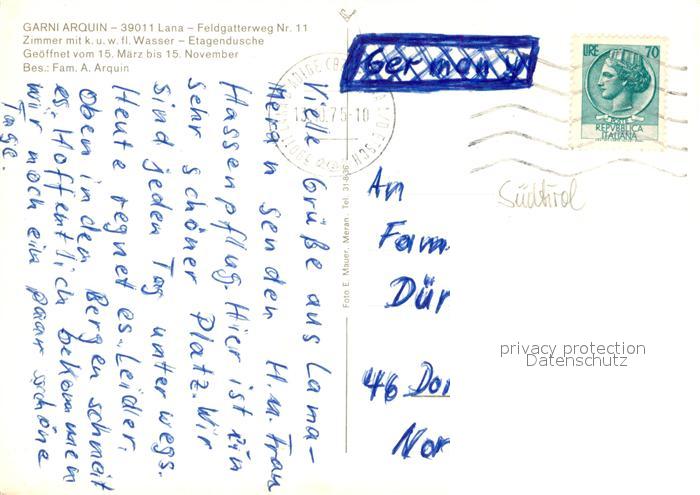 GARNI ARQUIN – 39011 Lana – Feldgatterweg Nr. 11
Zimmer mit k. u. w. fl. Wasser – Etagendusche
Geöffnet vom 15. März bis 15. November
Bes.: Fam. A. Arquin
Vielle Grüße aus Lana-
Meran senden H. u. Frau
Hassenpflug. Hier ist ein
sehr schöner Platz. Wir
sind jeden Tag unterwegs.
Heute regnet es. Leider,
Oben in den Bergen schneit
es. Hoffentlich bekommen
wir noch ein paar schöne
Tage.
Foto E. Mauer, Meran, Tel. 31-836
Germany
LIRE 70
REPVBBLICA
ITALIANA
Südtirol
An
Fam
Dür
46 Dor
Nor
privacy protection
Datenschutz